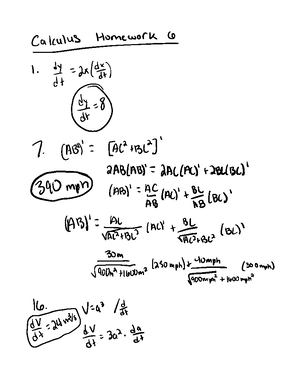 Calculus Homework 6
1. dy/dt = 2x(dx/dt)
dy/dt = 8
7. (AB)' = [AC²+BC²]'
2AB(AB)' = 2AC(AC)' + 2BC(BC)'
390 mph
(AB)' = AC/AB (AC)' + BC/AB (BC)'
(AB)' = AC/√AC²+BC² (AC)' + BC/√AC²+BC² (BC)'
30m/√900m²+1600m² (250mph) + 40mph/√900mph²+1600mph² (300mph)
16. V=a³ /d/dt
dV/dt = 24m³/s
dV/dt = 3a² · da/dt